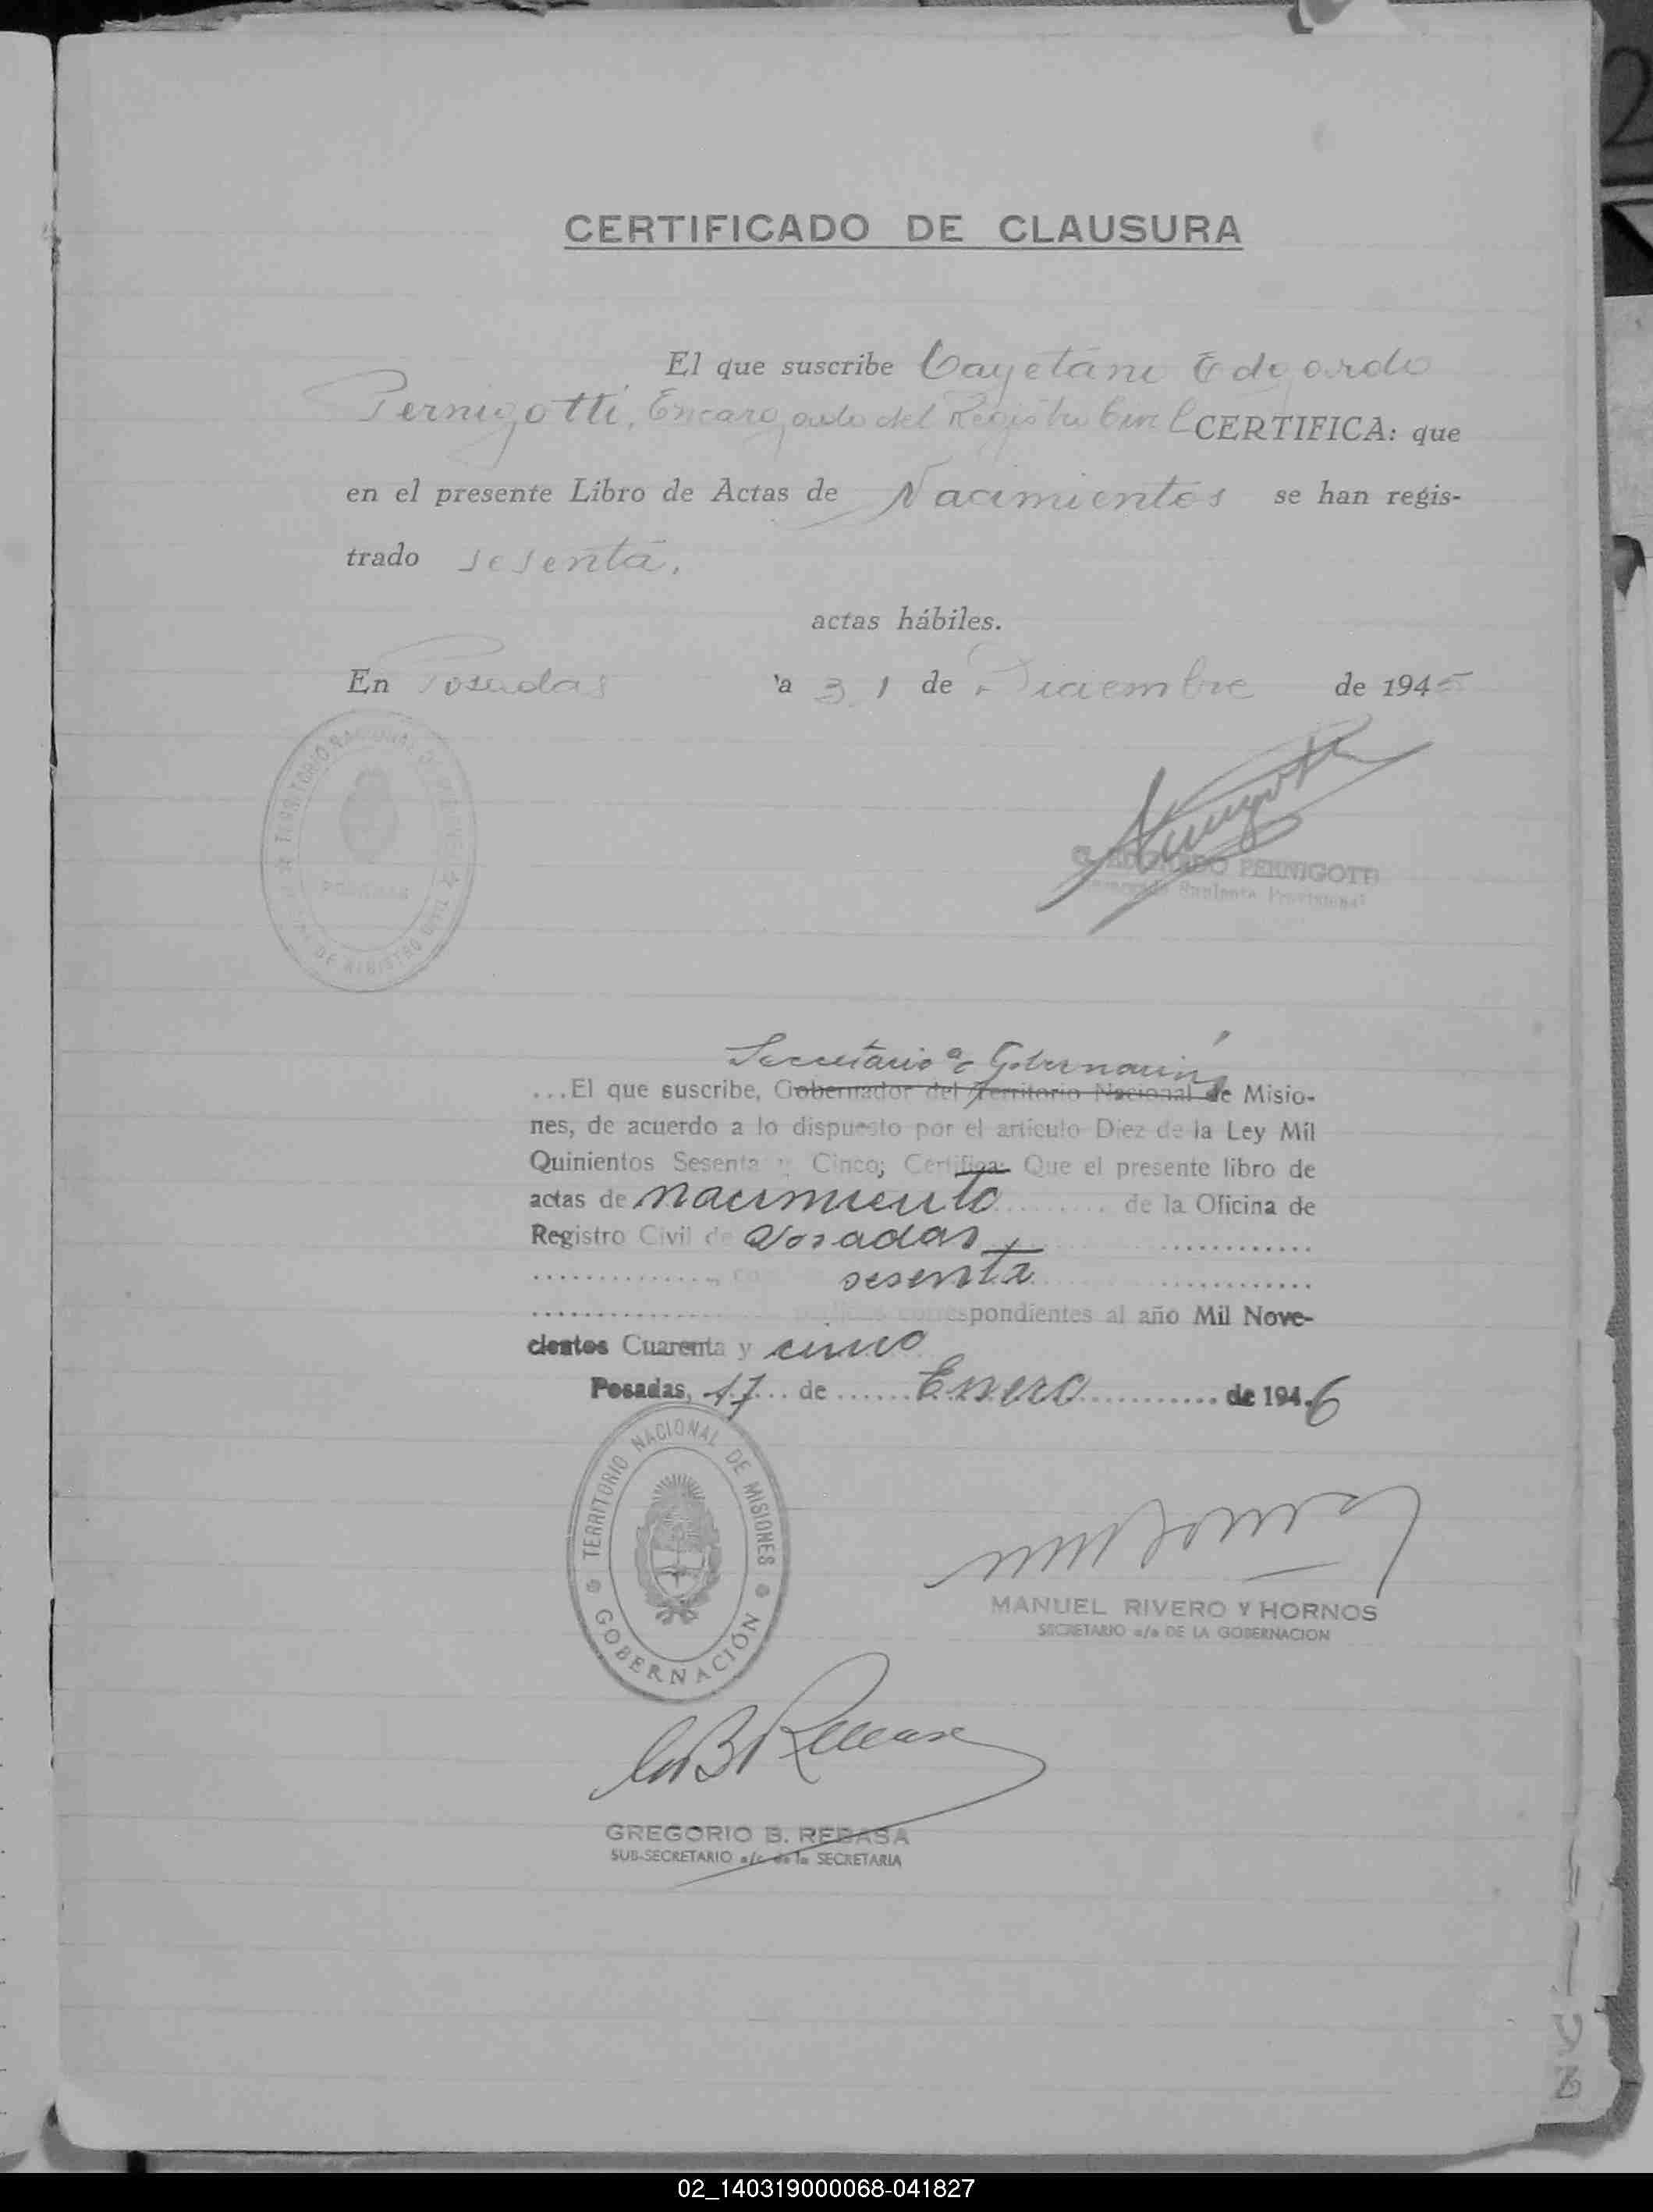 CERTIFICADO DE CLAUSURA
El que suscribe Cayetano Edgardo
Pernigotti, Encargado del Registro Civil CERTIFICA: que
en el presente Libro de Actas de Nacimientos se han regis-
trado sesenta.
actas hábiles.
En Posadas a 31 de Diciembre de 1945
TERRITORIO NACIONAL DE MISIONES
POSADAS
DE REGISTRO CIVIL
EDGARDO PERNIGOTTI
Encargado Suplente Provisional
Secretario a/c Gobernación
...El que suscribe, Gobernador del Territorio Nacional de Misio-
nes, de acuerdo a lo dispuesto por el artículo Diez de la Ley Mil
Quinientos Sesenta y Cinco; Certifica: Que el presente libro de
actas de nacimiento ......... de la Oficina de
Registro Civil de Posadas ............
.............. sesenta ............
................ partidas correspondientes al año Mil Nove-
cientos Cuarenta y cinco
Posadas, 17... de ...... Enero ........... de 1946
TERRITORIO NACIONAL DE MISIONES
GOBERNACIÓN
MANUEL RIVERO Y HORNOS
SECRETARIO a/c DE LA GOBERNACION
GREGORIO B. REBASA
SUB-SECRETARIO a/c de la SECRETARIA
02_140319000068-041827